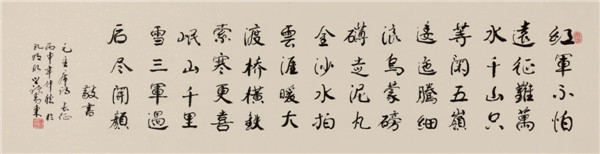 紅軍不怕
遠征難萬
水千山只
等閑五嶺
逶迤騰細
浪烏蒙磅
礴走泥丸
金沙水拍
雲涯暖大
渡桥橫鉄
索寒更喜
岷山千里
雪三軍過
后尽開顏
敬書
毛主席詩長征
丙申年仲秋於